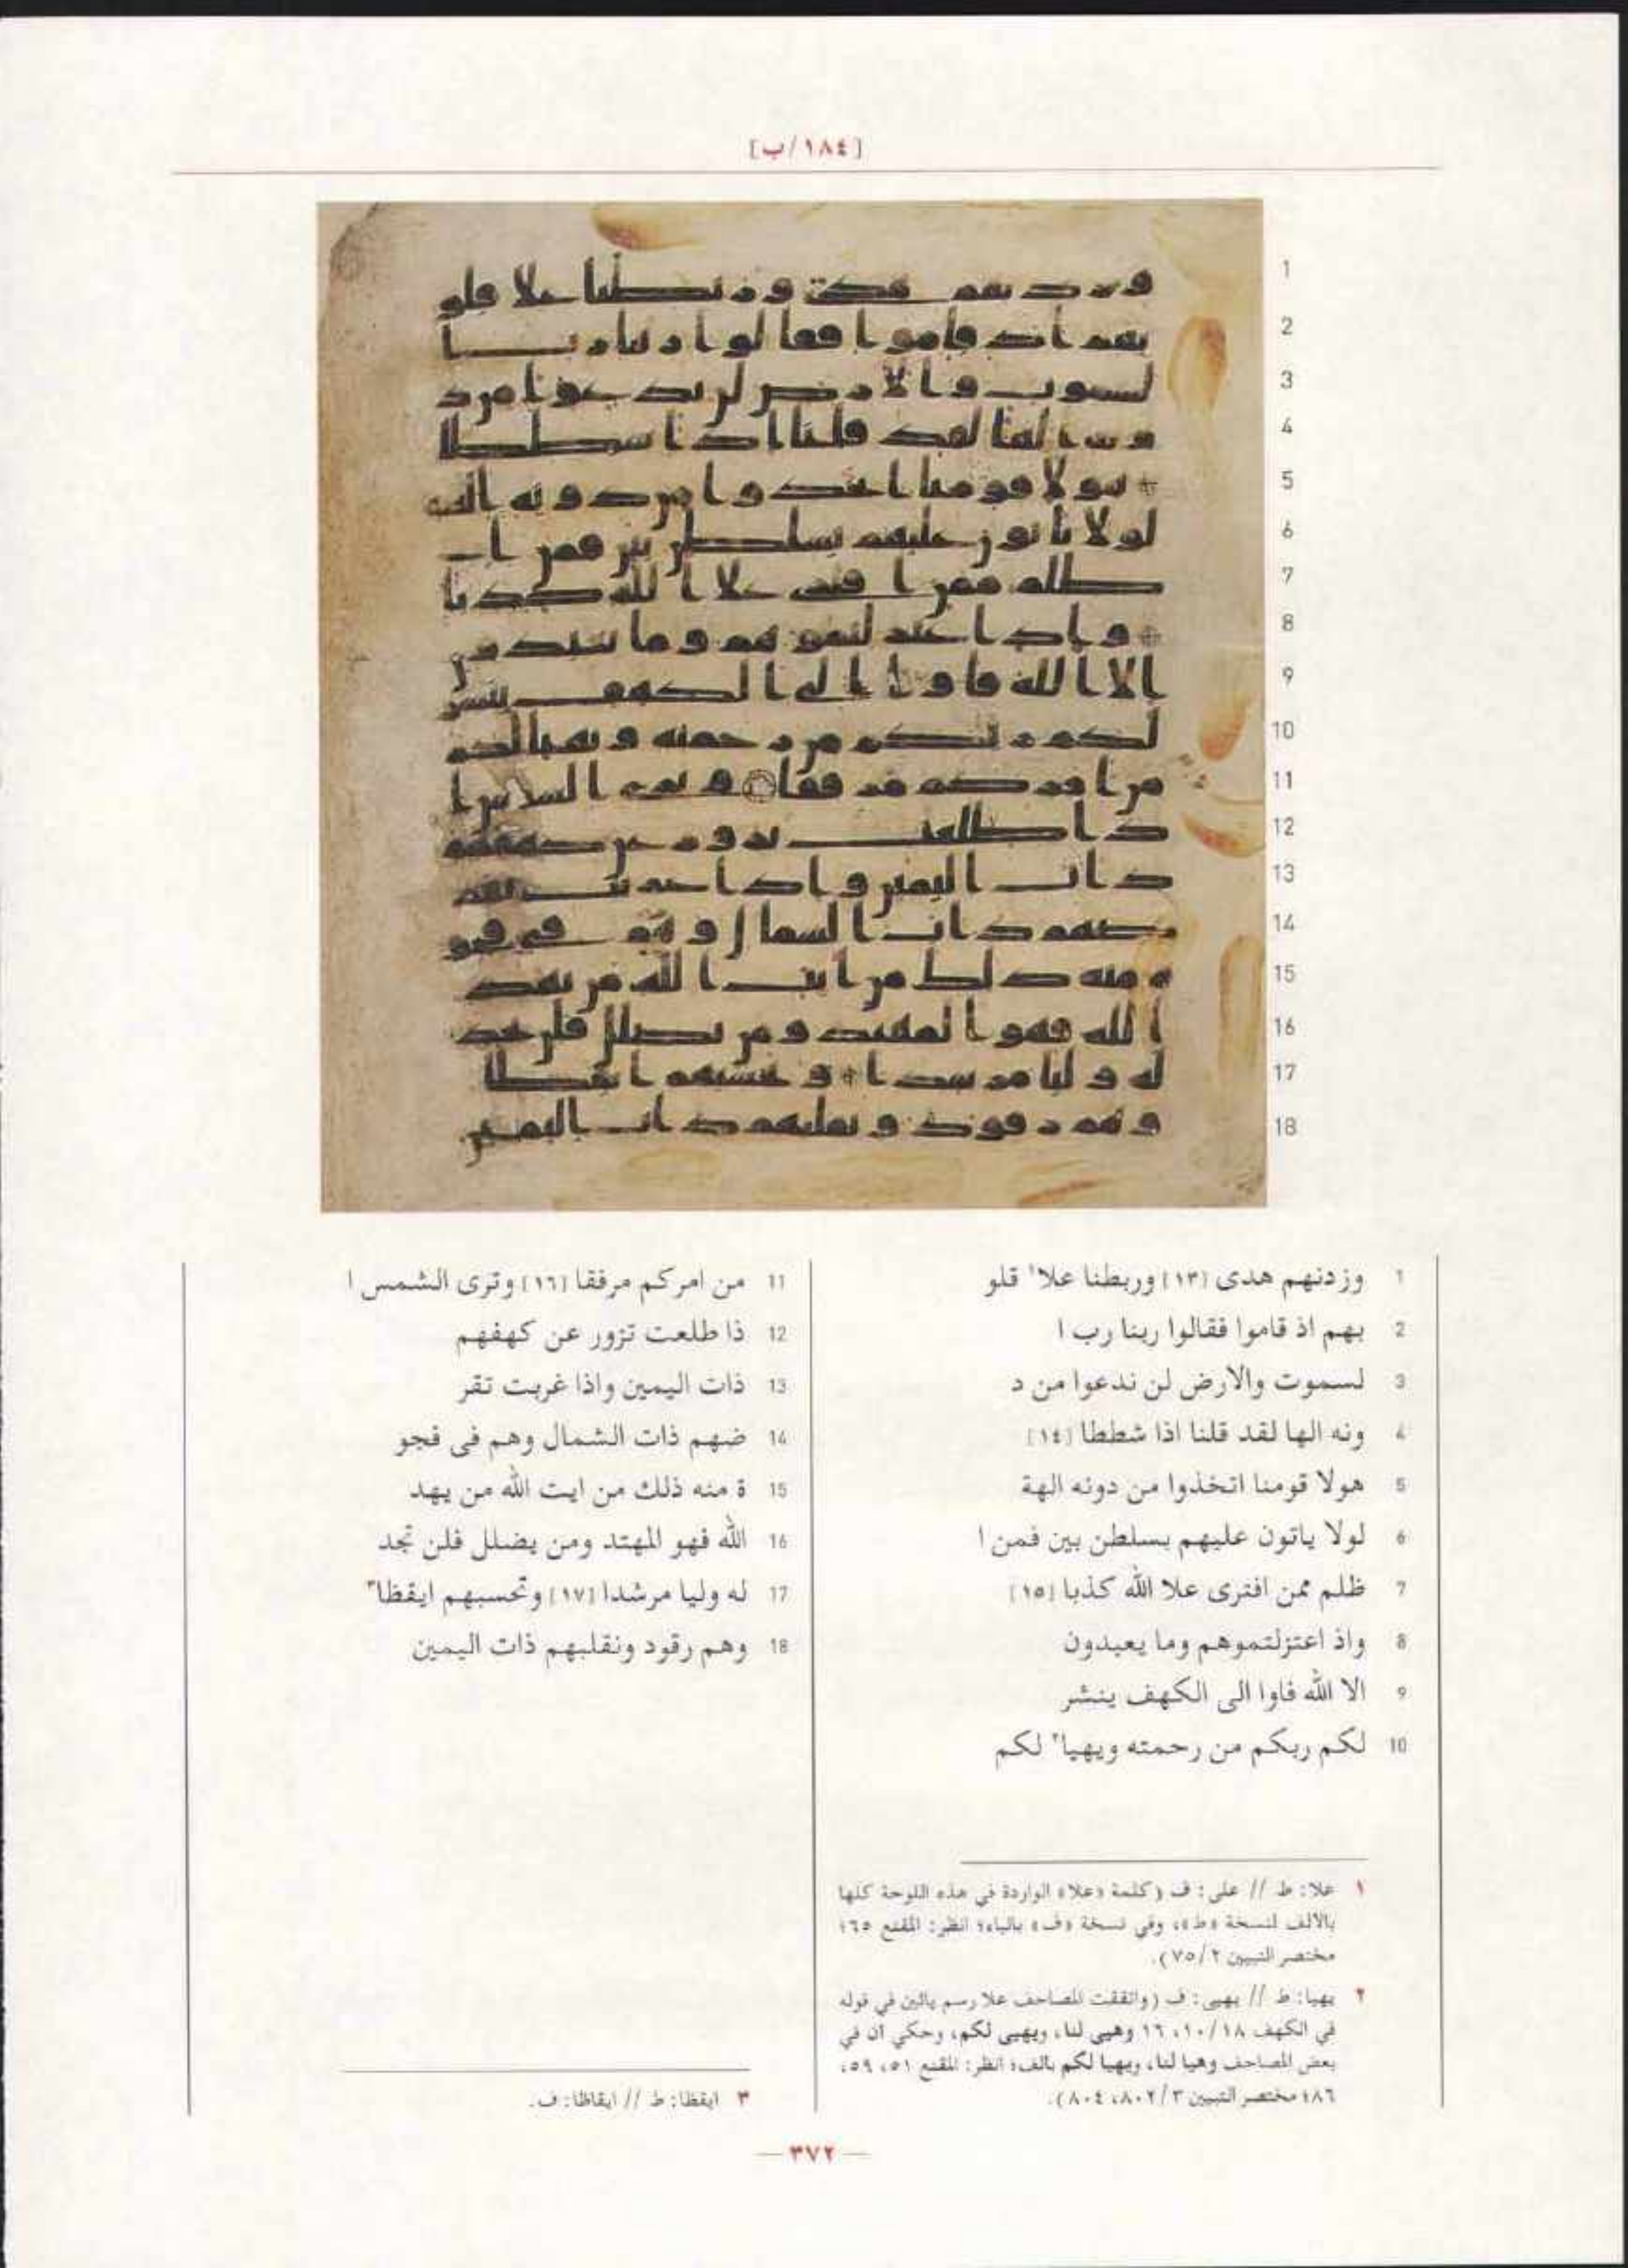 [١٨٤/ب]
1 وزدنهم هدى [١٣] وربطنا علا١ قلو
2 بهم اذ قاموا فقالوا ربنا رب ا
3 لسموت والارض لن ندعوا من د
4 ونه الها لقد قلنا اذا شططا [١٤]
5 هولا قومنا اتخذوا من دونه الهة
6 لولا ياتون عليهم بسلطن بين فمن ا
7 ظلم ممن افترى علا الله كذبا [١٥]
8 واذ اعتزلتموهم وما يعبدون
9 الا الله فاوا الى الكهف ينشر
10 لكم ربكم من رحمته ويهيا٢ لكم
11 من امركم مرفقا [١٦] وترى الشمس ا
12 ذا طلعت تزور عن كهفهم
13 ذات اليمين واذا غربت تقر
14 ضهم ذات الشمال وهم فى فجو
15 ة منه ذلك من ايت الله من يهد
16 الله فهو المهتد ومن يضلل فلن تجد
17 له وليا مرشدا [١٧] وتحسبهم ايقظا٣
18 وهم رقود ونقلبهم ذات اليمين
١ علا: ط // على: ف (كلمة «علا» الواردة في هذه اللوحة كلها
بالالف لنسخة «ط»، وفي نسخة «ف» بالياء؛ انظر: المقنع ٦٥؛
مختصر التبيين ٢/٧٥).
٢ يهيا: ط // يهيى: ف (واتفقت المصاحف علا رسم يائين في قوله
في الكهف ١٨/١٠، ١٦ وهيى لنا، ويهيى لكم، وحكي ان في
بعض المصاحف وهيا لنا، ويهيا لكم بالف؛ انظر: المقنع ٥١، ٥٩،
٨٦؛ مختصر التبيين ٣/٨٠٢، ٨٠٤).
٣ ايقظا: ط // ايقاظا: ف.
— ٣٧٢ —